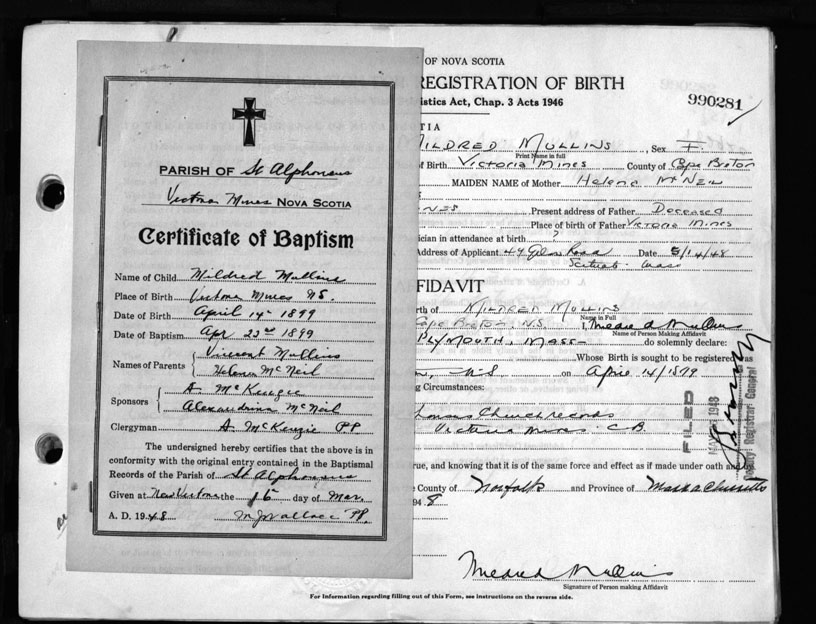 PARISH OF St Alphonsus
Victoria Mines NOVA SCOTIA
Certificate of Baptism
Name of Child Mildred Mullins
Place of Birth Victoria Mines NS.
Date of Birth April 14th 1899
Date of Baptism Apr 23rd 1899
Names of Parents
Vincent Mullins
Helena McNeil
Sponsors
A. McKenzie
Alexandrina McNeil
Clergyman A. McKenzie PP
The undersigned hereby certifies that the above is in
conformity with the original entry contained in the Baptismal
Records of the Parish of St Alphonsus
Given at New Victoria the 15 day of Mar.
A. D. 1948 Wallace PP.
OF NOVA SCOTIA
REGISTRATION OF BIRTH
istics Act, Chap. 3 Acts 1946
990281
TIA
MILDRED MULLINS, Sex F
Print Name in full
f Birth Victoria Mines County of Cape Breton
MAIDEN NAME of Mother Helena McNeil
NES Present address of Father Deceased
Place of birth of Father Victoria Mines
ician in attendance at birth ?
Address of Applicant 44 Glen Road Date 5/14/48
Scituate Mass
FFIDAVIT
rth of MILDRED MULLINS
Name in Full
Cape Breton, N.S. I, Mildred Mullins
Name of Person Making Affidavit
PLYMOUTH, MASS do solemnly declare:
Whose Birth is sought to be registered as
N.S on April 14/1899
g Circumstances:
Church records
Victoria Mines C.B.
FILED
MAY 1948
Deputy Registrar General
rue, and knowing that it is of the same force and effect as if made under oath and by
County of Norfolk and Province of Massachusetts
948
Mildred Mullins
Signature of Person making Affidavit
For Information regarding filling out of this Form, see instructions on the reverse side.